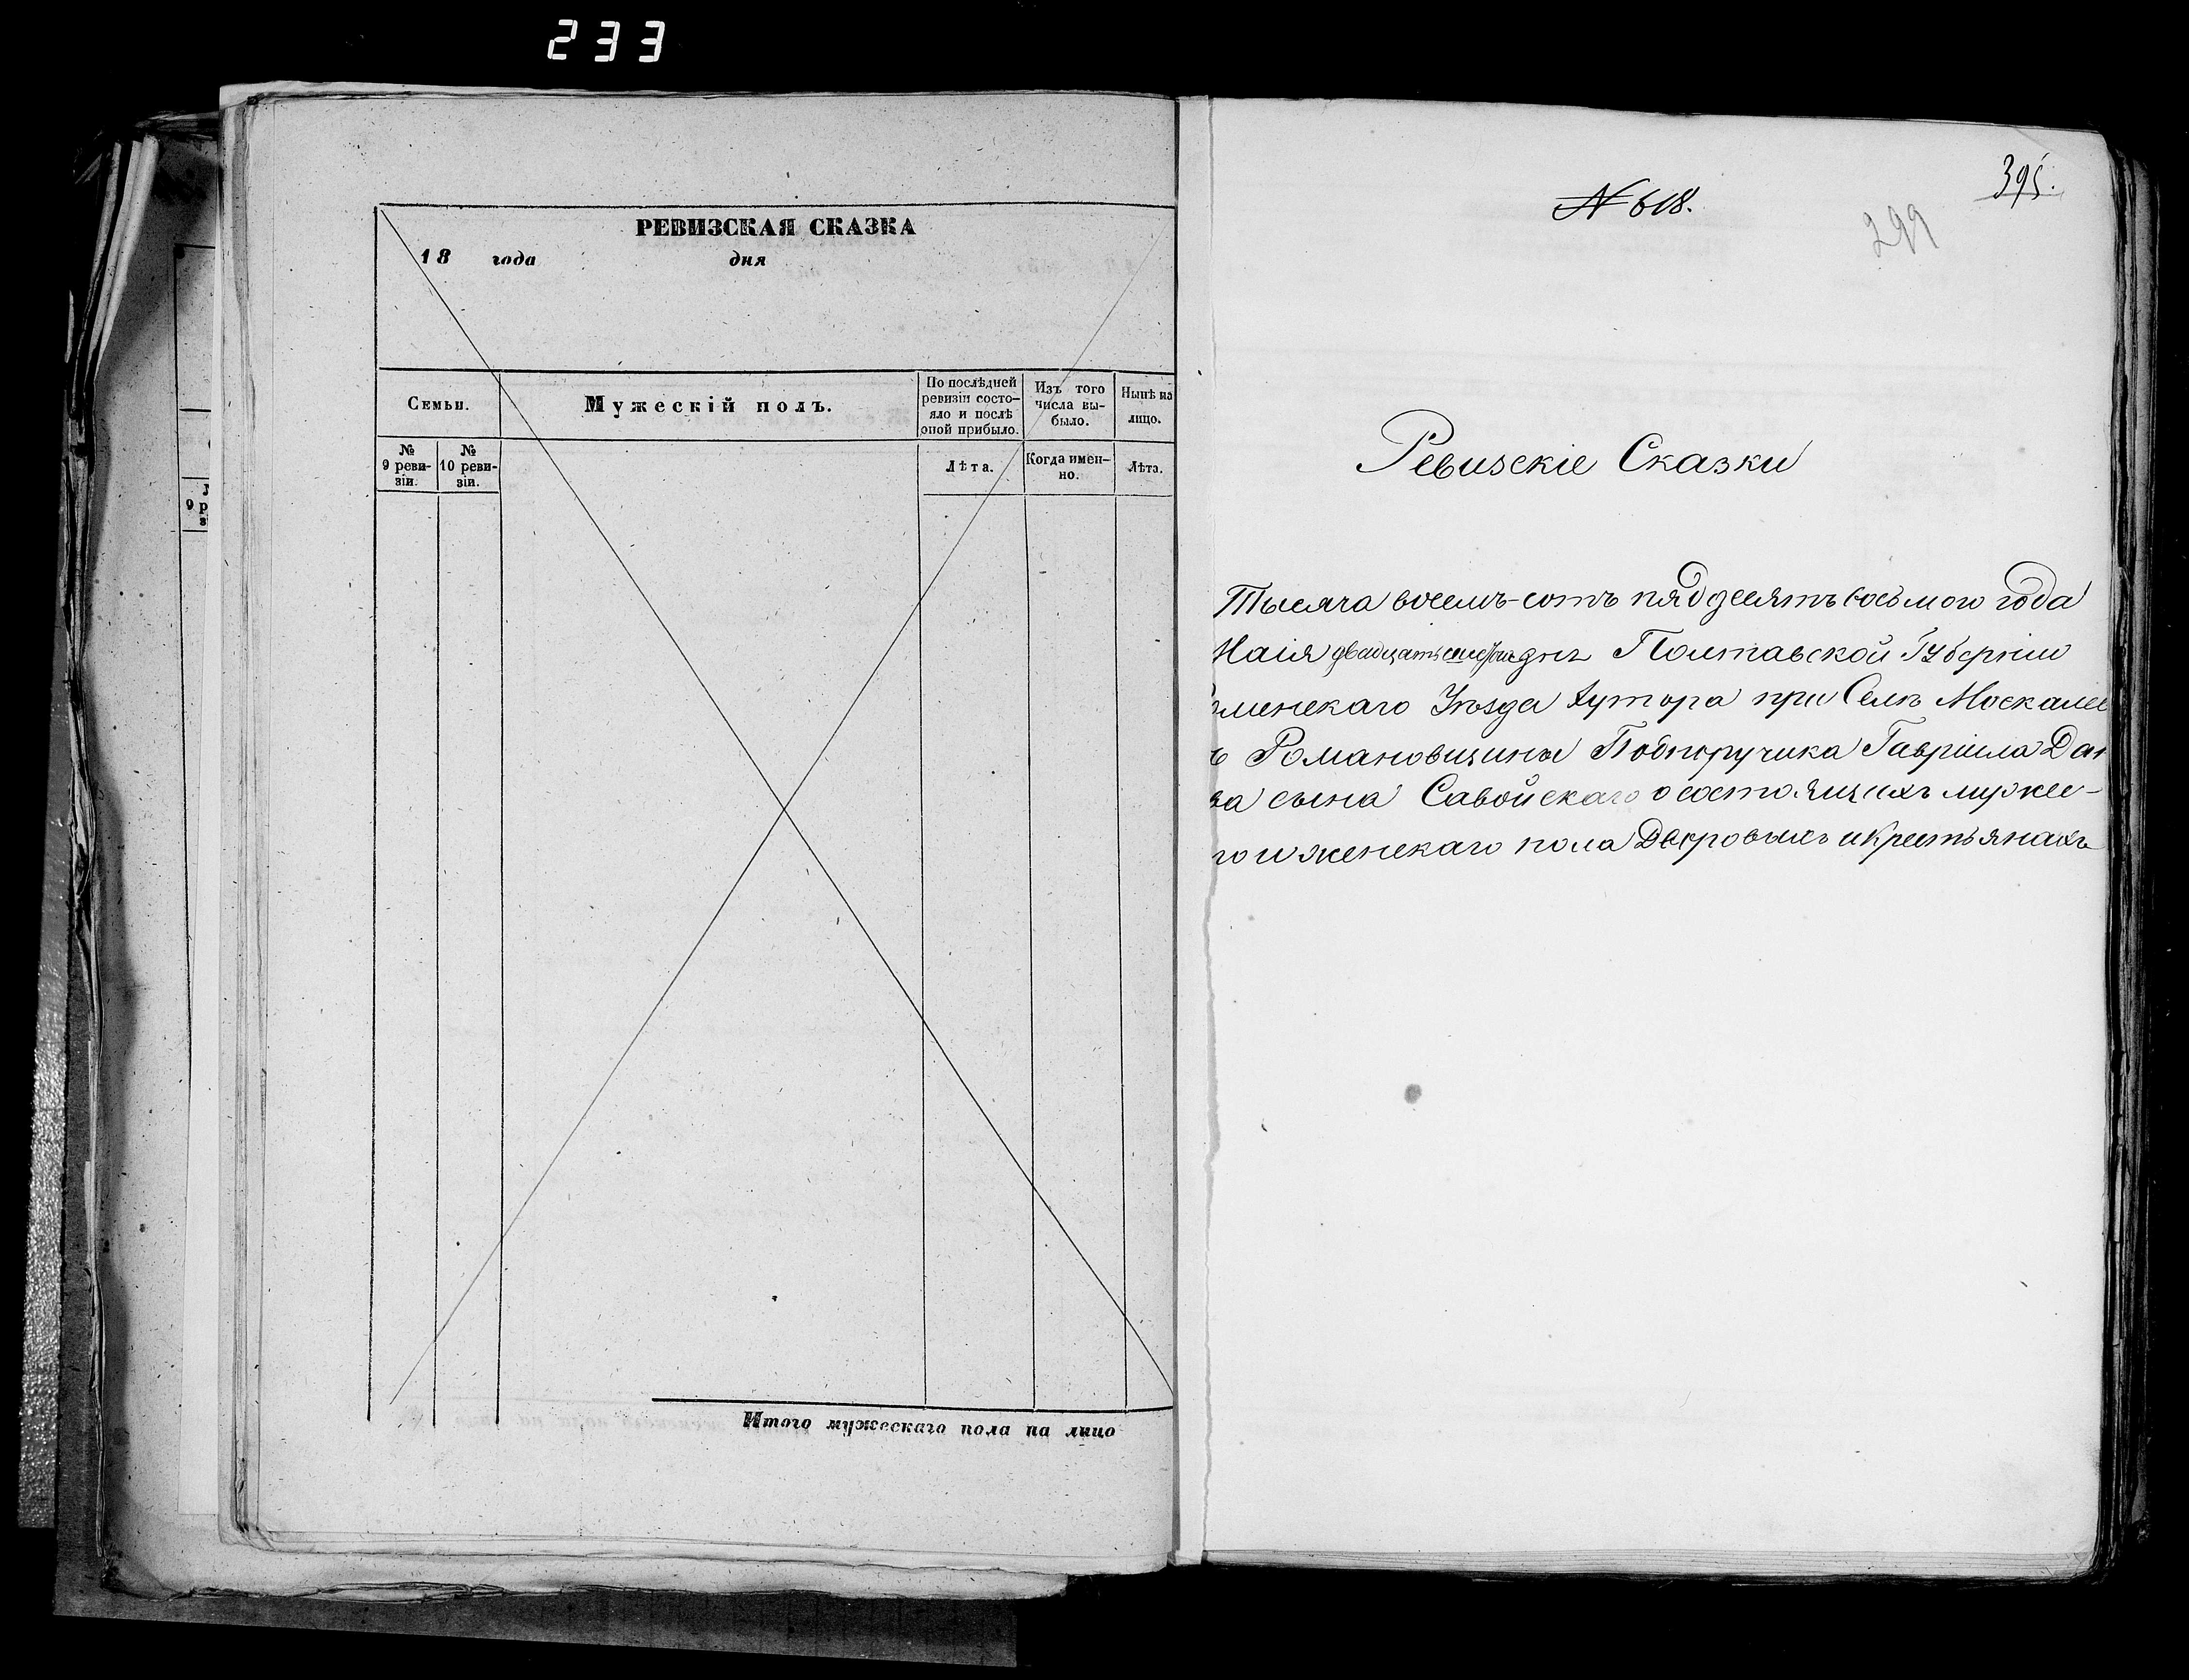 233
РЕВИЗСКАЯ СКАЗКА
18 года дня
Семьи.
Мужескій полъ.
По послѣдней ревизіи состо-яло и послѣ оной прибыло.
Изъ того числа вы-было.
Нынѣ на лицо.
№ 9 реви-зіи.
№ 10 реви-зіи.
Лѣта.
Когда имен-но.
Лѣта.
Итого мужескаго пола на лицо
9 р
№ 618.
395.
299
Ревизскіе Сказки
Тысяча восемъ-сотъ пядесятъ восьмого года
Маія двадцать дня Полтавской Губерніи
оменскаго Уѣзда Хутора при Селѣ Москале
ъ Романовщины Подпоручика Гавріила Дан
ва сына Савойскаго о состоящихъ мужес-
го и женскаго пола Дворовыхъ и Крестьянахъ